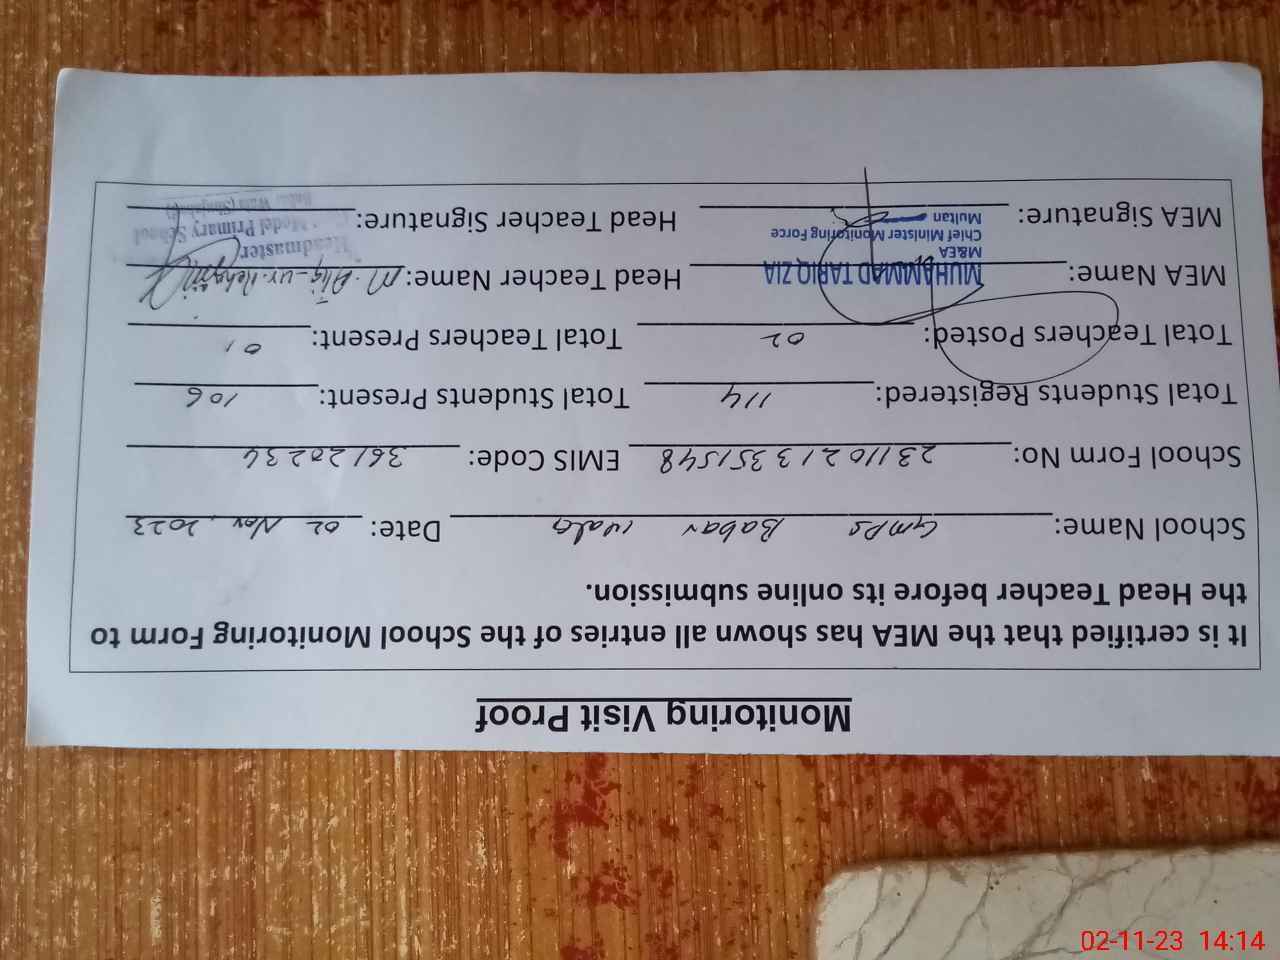 Monitoring Visit Proof
It is certified that the MEA has shown all entries of the School Monitoring Form to
the Head Teacher before its online submission.
School Name: GMPS Babar wala Date: 02 Nov, 2023
School Form No: 23110213351548 EMIS Code: 36120234
Total Students Registered: 114 Total Students Present: 106
Total Teachers Posted: 02 Total Teachers Present: 01
MEA Name: MUHAMMAD TARIQ ZIA Head Teacher Name: M. Atiq-ur-Rehman
M&EA
Chief Minister Monitoring Force
Multan
Headmaster
Model Primary School
MEA Signature: Head Teacher Signature:
02-11-23 14:14